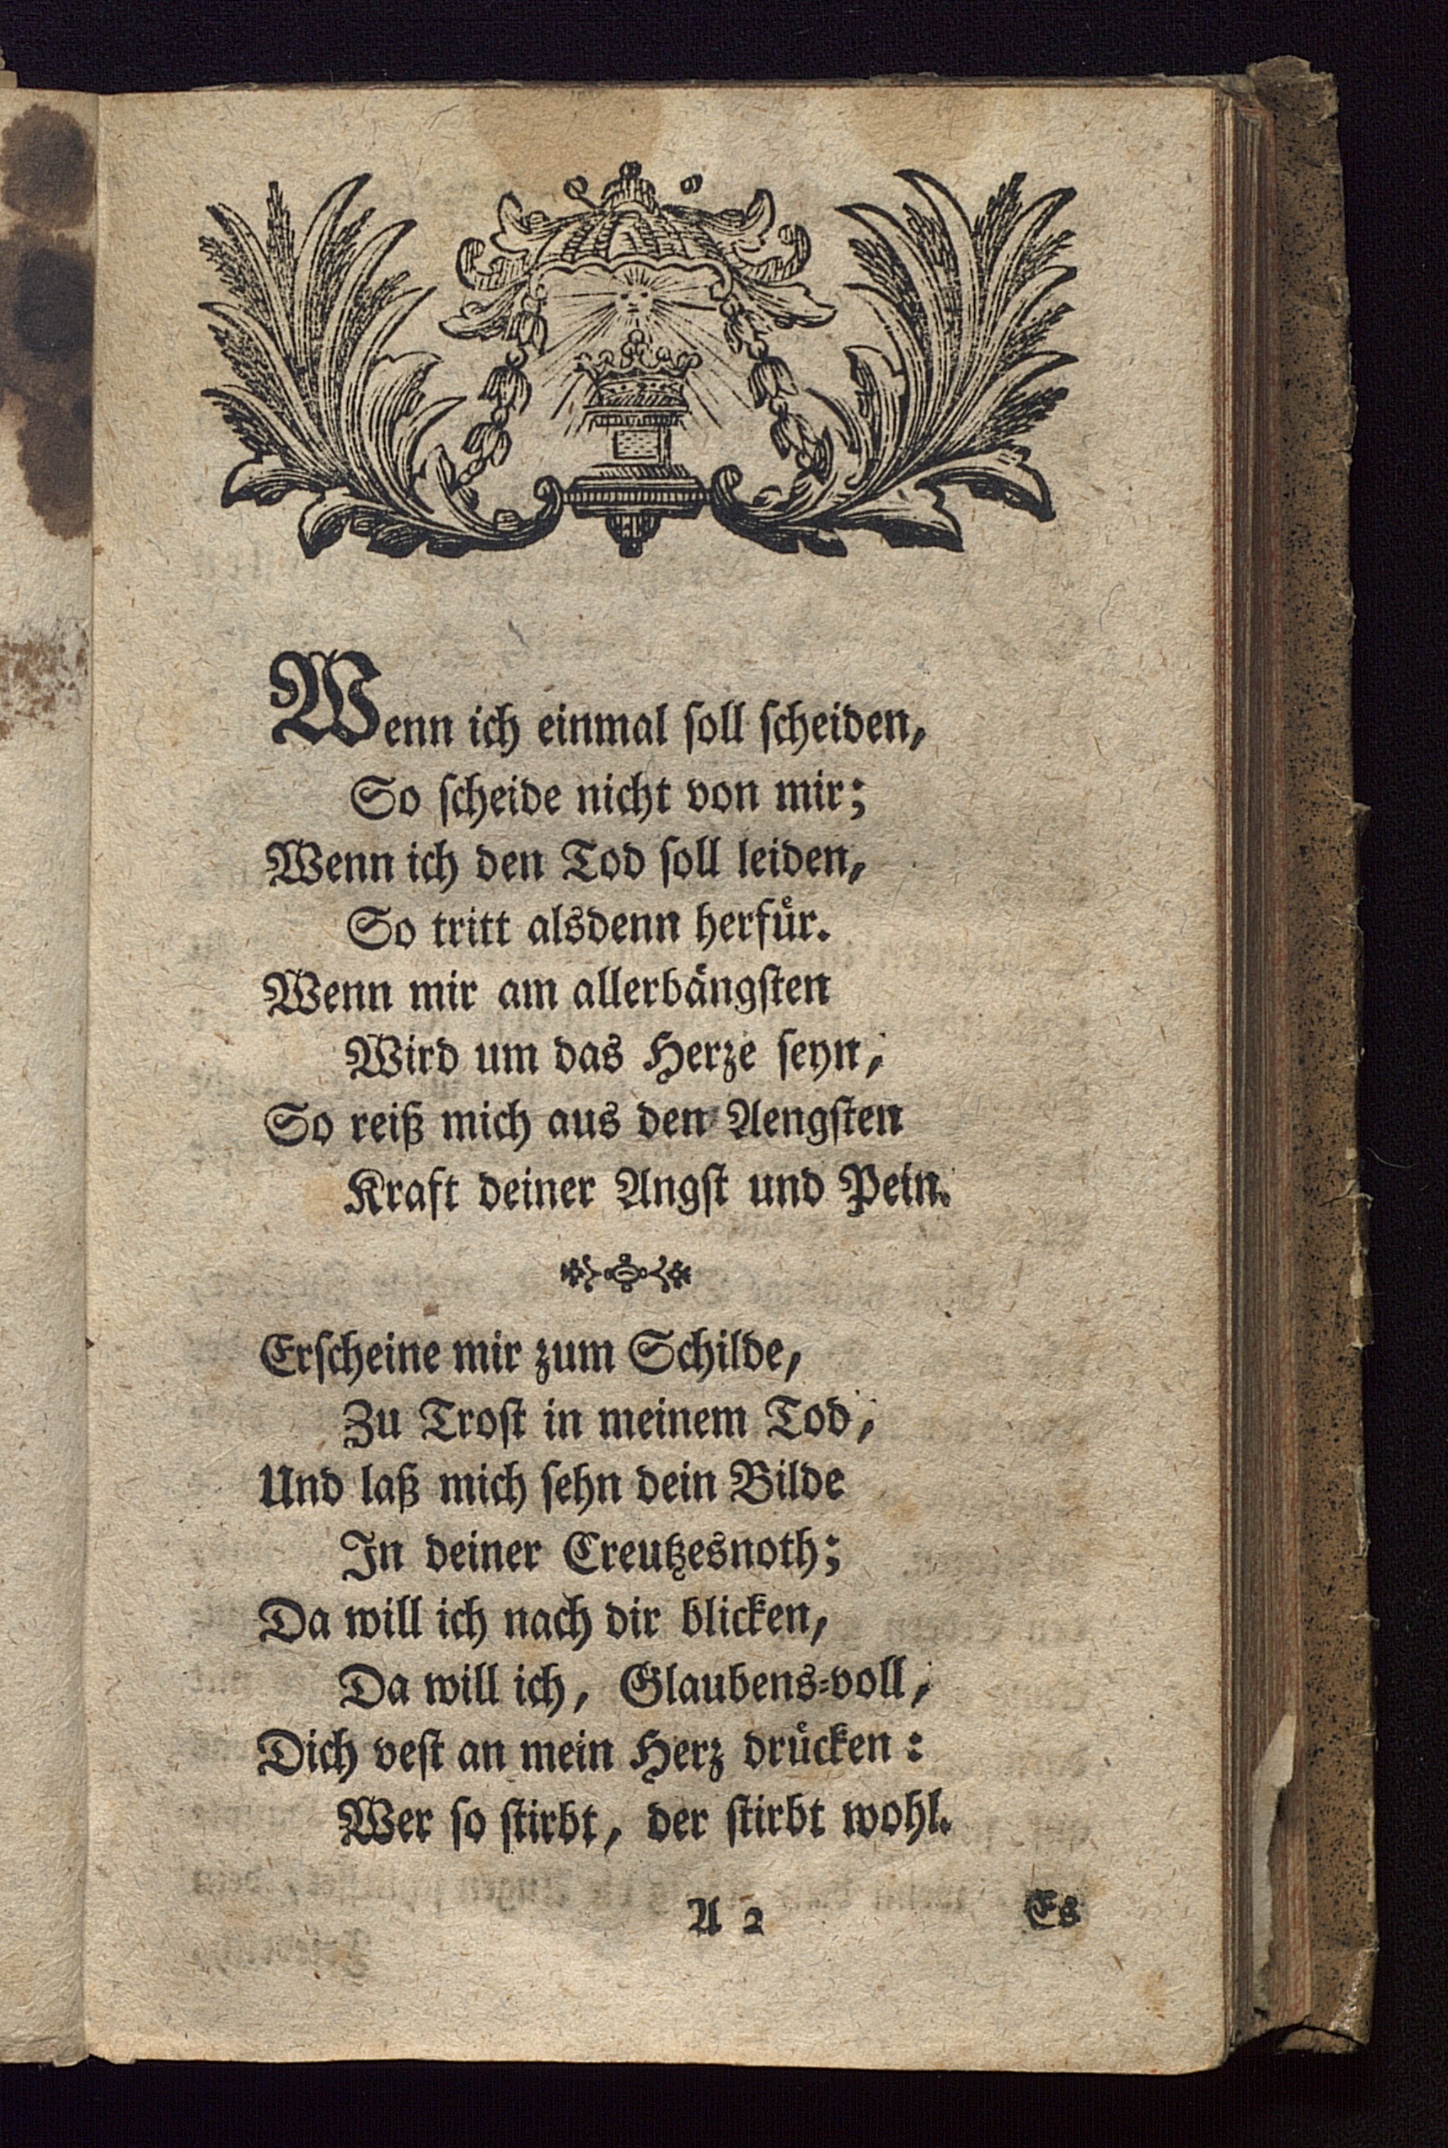 Wenn ich einmal soll scheiden,
So scheide nicht von mir;
Wenn ich den Tod soll leiden,
So tritt alsdenn herfür.
Wenn mir am allerbängsten
Wird um das Herze seyn,
So reiß mich aus den Aengsten
Kraft deiner Angst und Pein.
Erscheine mir zum Schilde,
Zu Trost in meinem Tod,
Und laß mich sehn dein Bilde
In deiner Creutzesnoth;
Da will ich nach dir blicken,
Da will ich, Glaubens-voll,
Dich vest an mein Herz drücken:
Wer so stirbt, der stirbt wohl.
A 2 Es